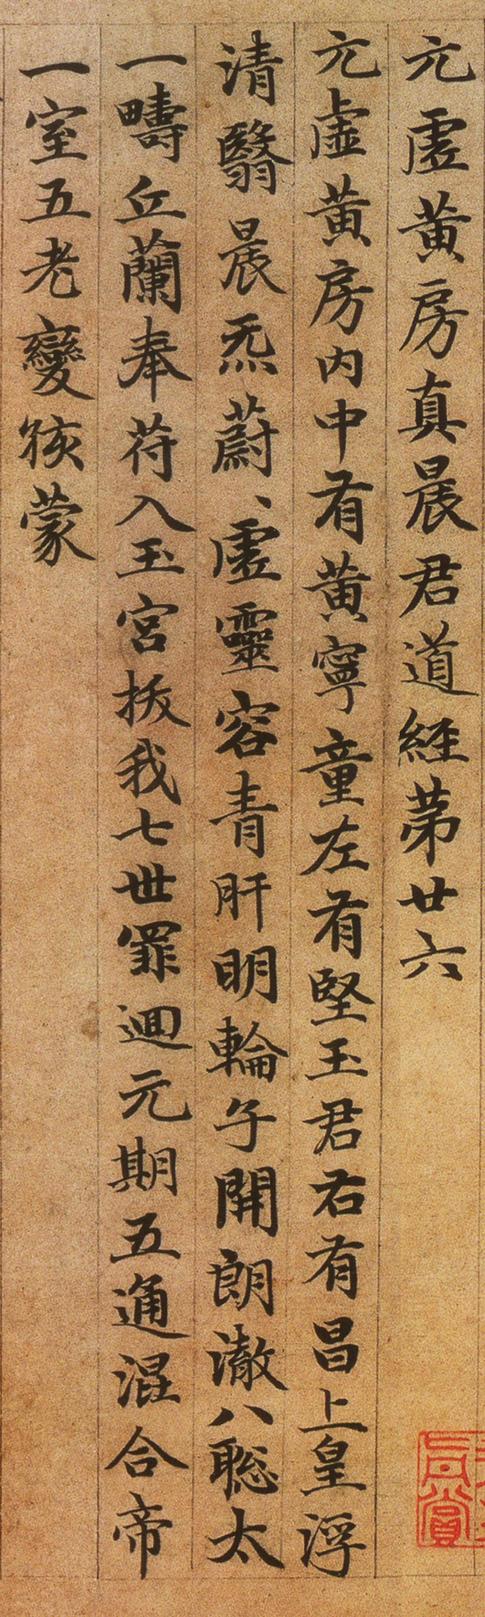 元虛黃房真晨君道經苐廿六
元虛黃房內中有黃寧童左有堅玉君右有昌上皇浮
清翳晨炁蔚、虛靈容青肝明輪子開朗澈八聦太
一疇丘蘭奉苻入玉宮拔我七世罪逥元期五通混合帝
一室五老變孩蒙